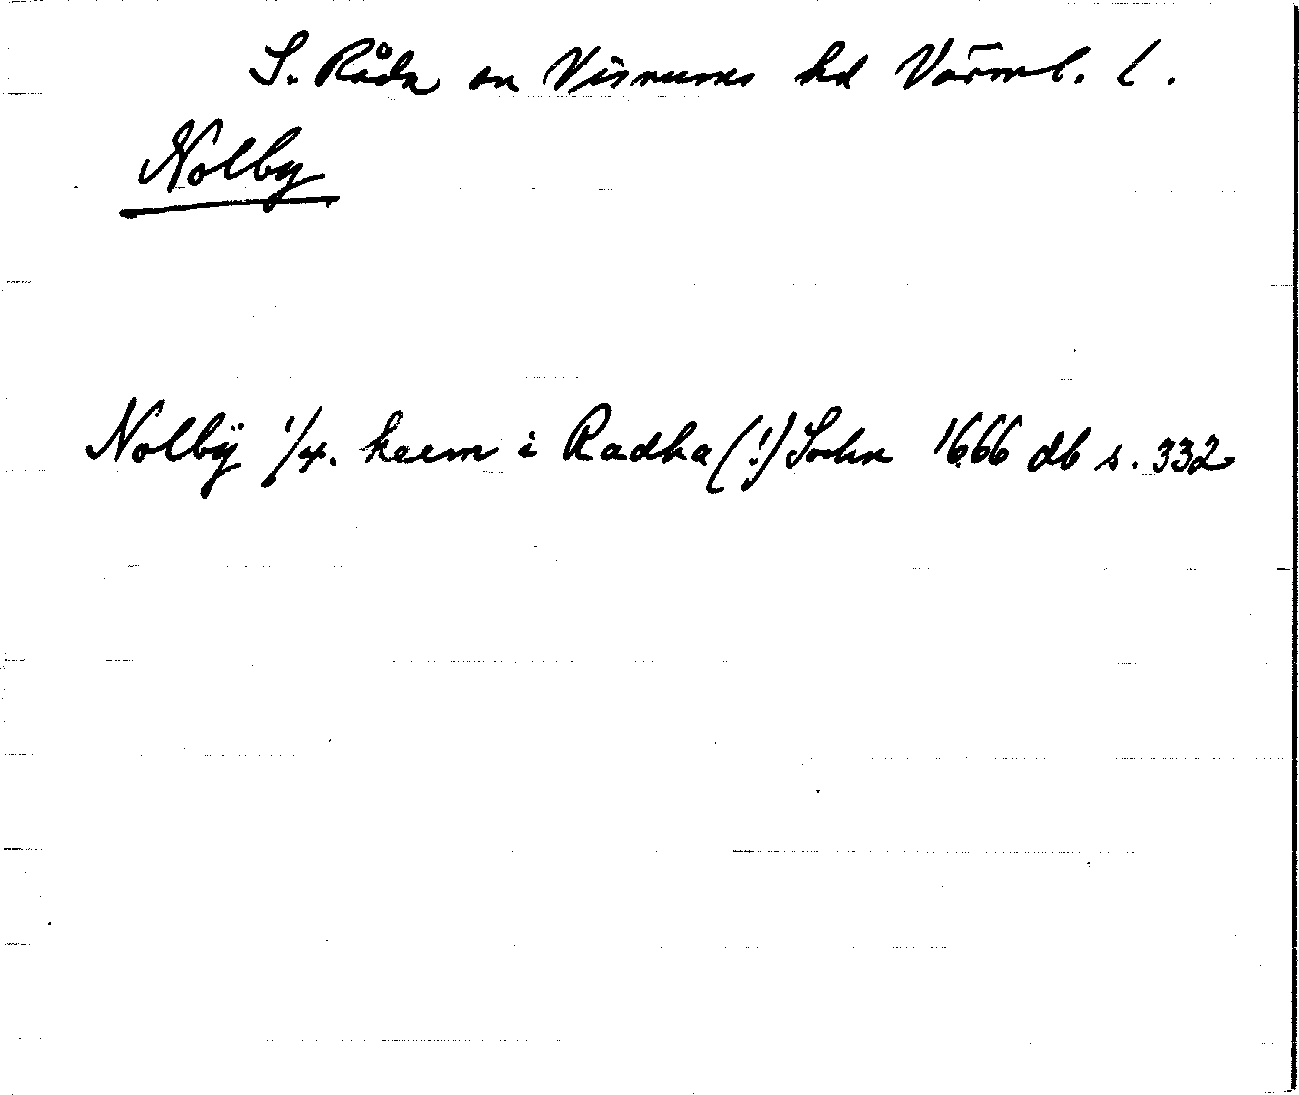 S. Råda sn Visnums hd Värml. l.
Nolby
Nolbÿ 1/4. heem i Radha (!) Sochn 1666 db s. 332